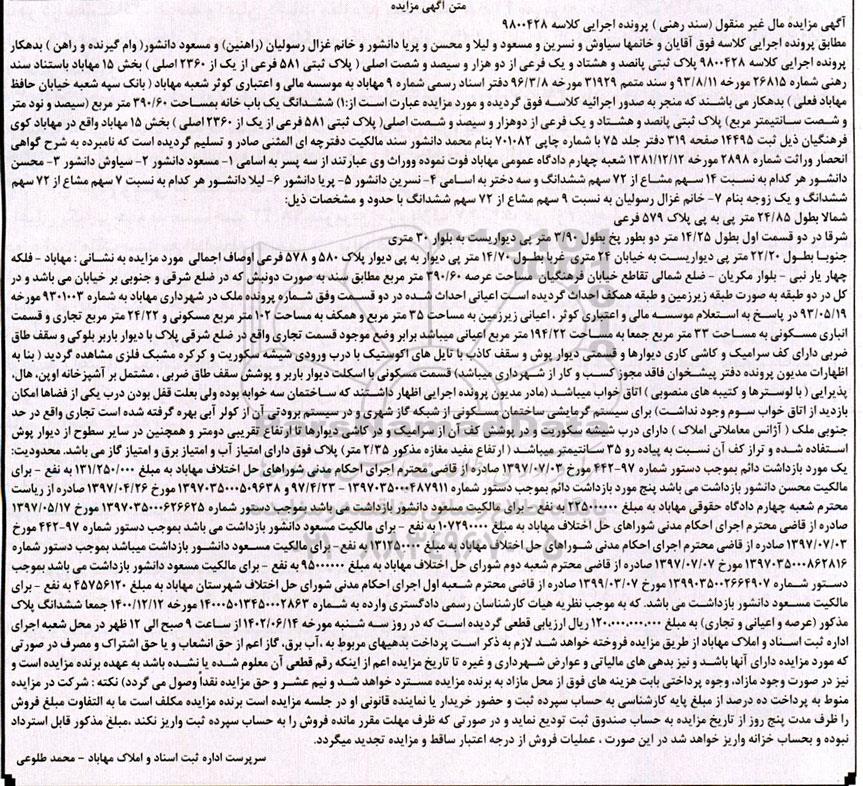 متن آگهی مزایده
آگهی مزایده مال غیر منقول (سند رهنی ) پرونده اجرایی کلاسه ۹۸۰۰۴۲۸
مطابق پرونده اجرایی کلاسه فوق آقایان و خانمها سیاوش و نسرین و مسعود و لیلا و محسن و پریا دانشور و خانم غزال رسولیان (راهنین) و مسعود دانشور( وام گیرنده و راهن ) بدهکار
پرونده اجرایی کلاسه ۹۸۰۰۴۲۸ پلاک ثبتی پانصد و هشتاد و یک فرعی از دو هزار و سیصد و شصت اصلی ( پلاک ثبتی ۵۸۱ فرعی از یک از ۲۳۶۰ اصلی ) بخش ۱۵ مهاباد باستناد سند
رهنی شماره ۲۶۸۱۵ مورخه ۹۳/۸/۱۱ و سند متمم ۳۱۹۲۹ مورخه ۹۶/۳/۸ دفتر اسناد رسمی شماره ۹ مهاباد به موسسه مالی و اعتباری کوثر شعبه مهاباد ( بانک سپه شعبه خیابان حافظ
مهاباد فعلی ) بدهکار می باشند که منجر به صدور اجرائیه کلاسه فوق گردیده و مورد مزایده عبارت است از:۱) ششدانگ یک باب خانه بمساحت ۳۹۰/۶۰ متر مربع (سیصد و نود متر
و شصت سانتیمتر مربع) پلاک ثبتی پانصد و هشتاد و یک فرعی از دوهزار و سیصد و شصت اصلی( پلاک ثبتی ۵۸۱ فرعی از یک از ۲۳۶۰ اصلی ) بخش ۱۵ مهاباد واقع در مهاباد کوی
فرهنگیان ذیل ثبت ۱۴۴۹۵ صفحه ۳۱۹ دفتر جلد ۷۵ با شماره چاپی ۷۰۱۰۸۲ بنام محمد دانشور سند مالکیت دفترچه ای المثنی صادر و تسلیم گردیده است که نامبرده به شرح گواهی
انحصار وراثت شماره ۲۸۹۸ مورخه ۱۳۸۱/۱۲/۱۲ شعبه چهارم دادگاه عمومی مهاباد فوت نموده ووراث وی عبارتند از سه پسر به اسامی ۱- مسعود دانشور ۲- سیاوش دانشور ۳- محسن
دانشور هر کدام به نسبت ۱۴ سهم مشاع از ۷۲ سهم ششدانگ و سه دختر به اسامی ۴- نسرین دانشور ۵- پریا دانشور ۶- لیلا دانشور هر کدام به نسبت ۷ سهم مشاع از ۷۲ سهم
ششدانگ و یک زوجه بنام ۷- خانم غزال رسولیان به نسبت ۹ سهم مشاع از ۷۲ سهم ششدانگ با حدود و مشخصات ذیل:
شمالا بطول ۲۴/۸۵ متر پی به پی پلاک ۵۷۹ فرعی
شرقا در دو قسمت اول بطول ۱۴/۲۵ متر دو بطور پخ بطول ۳/۹۰ متر پی دیواریست به بلوار ۳۰ متری
جنوبا بطول ۲۲/۲۰ متر پی دیواریست به خیابان ۲۴ متری غربا بطول ۱۴/۷۰ متر پی دیوار به پی دیوار پلاک ۵۸۰ و ۵۷۸ فرعی اوصاف اجمالی مورد مزایده به نشانی : مهاباد - فلکه
چهار یار نبی - بلوار مکریان - ضلع شمالی تقاطع خیابان فرهنگیان مساحت عرصه ۳۹۰/۶۰ متر مربع مطابق سند به صورت دونبش که در ضلع شرقی و جنوبی بر خیابان می باشد و در
کل در دو طبقه به صورت طبقه زیرزمین و طبقه همکف احداث گردیده است اعیانی احداث شده در دو قسمت وفق شماره پرونده ملک در شهرداری مهاباد به شماره ۹۳۰۱۰۰۳ مورخه
۹۳/۰۵/۱۹ در پاسخ به استعلام موسسه مالی و اعتباری کوثر ، اعیانی زیرزمین به مساحت ۳۵ متر مربع و همکف به مساحت ۱۰۲ متر مربع مسکونی و ۲۴/۲۲ متر مربع تجاری و قسمت
انباری مسکونی به مساحت ۳۳ متر مربع جمعا به مساحت ۱۹۴/۲۲ متر مربع اعیانی میباشد برابر وضع موجود قسمت تجاری واقع در ضلع شرقی پلاک با دیوار باربر بلوکی و سقف طاق
ضربی دارای کف سرامیک و کاشی کاری دیوارها و قسمتی دیوار پوش و سقف کاذب با تایل های اکوستیک با درب ورودی شیشه سکوریت و کرکره مشبک فلزی مشاهده گردید ( بنا به
اظهارات مدیون پرونده دفتر پیشخوان فاقد مجوز کسب و کار از شهرداری میباشد) قسمت مسکونی با اسکلت دیوار باربر و پوشش سقف طاق ضربی ، مشتمل بر آشپزخانه اوپن، هال،
پذیرایی ( با لوسترها و کتیبه های منصوبی ) اتاق خواب میباشد (مادر مدیون پرونده اجرایی اظهار داشتند که ساختمان سه خوابه بوده ولی بعلت قفل بودن درب یکی از فضاها امکان
بازدید از اتاق خواب سوم وجود نداشت) برای سیستم گرمایشی ساختمان مسکونی از شبکه گاز شهری و در سیستم برودتی آن از کولر آبی بهره گرفته شده است تجاری واقع در حد
جنوبی ملک ( آژانس معاملاتی املاک ) دارای درب شیشه سکوریت و در پوشش کف آن از سرامیک و در کاشی دیوارها تا ارتفاع تقریبی دومتر و همچنین در سایر سطوح از دیوار پوش
استفاده شده و تراز کف آن نسبت به پیاده رو ۳۵ سانتیمتر میباشد ( ارتفاع مفید مغازه مذکور ۲/۳۵ متر) پلاک فوق دارای امتیاز آب و امتیاز برق و امتیاز گاز می باشد. محدودیت:
یک مورد بازداشت دائم بموجب دستور شماره ۹۷-۴۴۲ مورخ ۱۳۹۷/۰۷/۰۳ صادره از قاضی محترم اجرای احکام مدنی شوراهای حل اختلاف مهاباد به مبلغ ۱۳۱/۲۵۰/۰۰۰ به نفع - برای
مالکیت محسن دانشور بازداشت می باشد پنج مورد بازداشت دائم بموجب دستور شماره ۱۳۹۷۰۳۵۰۰۰۴۸۷۹۱۱ - ۹۷/۴/۲۳ و ۱۳۹۷۰۳۵۰۰۰۵۰۹۶۳۸ مورخ ۱۳۹۷/۰۴/۲۶ صادره از ریاست
محترم شعبه چهارم دادگاه حقوقی مهاباد به مبلغ ۲۲۵۰۰۰۰۰۰ به نفع - برای مالکیت مسعود دانشور بازداشت می باشد بموجب دستور شماره ۱۳۹۷۰۳۵۰۰۰۶۲۶۶۲۵ مورخ ۱۳۹۷/۰۵/۱۷
صادره از قاضی محترم اجرای احکام مدنی شوراهای حل اختلاف مهاباد به مبلغ ۱۰۷۲۹۰۰۰۰ به نفع - برای مالکیت مسعود دانشور بازداشت می باشد بموجب دستور شماره ۹۷-۴۴۲ مورخ
۱۳۹۷/۰۷/۰۳ صادره از قاضی محترم اجرای احکام مدنی شوراهای حل اختلاف مهاباد به مبلغ ۱۳۱۲۵۰۰۰۰ به نفع - برای مالکیت مسعود دانشور بازداشت میباشد بموجب دستور شماره
۱۳۹۷۰۳۵۰۰۰۸۶۲۸۱۶ مورخ ۱۳۹۷/۰۷/۰۷ صادره از قاضی محترم شعبه دوم شورای حل اختلاف مهاباد به مبلغ ۹۵۰۰۰۰۰۰ به نفع - برای مالکیت مسعود دانشور بازداشت می باشد بموجب
دستور شماره ۱۳۹۹۰۳۵۰۰۰۲۶۶۴۹۰۷ مورخ ۱۳۹۹/۰۳/۰۷ صادره از قاضی محترم شعبه اول اجرای احکام مدنی شورای حل اختلاف شهرستان مهاباد به مبلغ ۴۵۷۵۶۱۲۰ به نفع - برای
مالکیت مسعود دانشور بازداشت می باشد. که به موجب نظریه هیات کارشناسان رسمی دادگستری وارده به شماره ۱۴۰۰۰۵۰۱۳۴۵۰۰۰۲۸۶۳ مورخه ۱۴۰۰/۱۲/۱۲ جمعا ششدانگ پلاک
مذکور (عرصه و اعیانی و تجاری) به مبلغ ۱۲۰.۰۰۰.۰۰۰.۰۰۰ ریال ارزیابی قطعی گردیده است که در روز سه شنبه مورخه ۱۴۰۲/۰۶/۱۴ از ساعت ۹ صبح الی ۱۲ ظهر در محل شعبه اجرای
اداره ثبت اسناد و املاک مهاباد از طریق مزایده فروخته خواهد شد لازم به ذکر است پرداخت بدهیهای مربوط به ،آب برق، گاز اعم از حق انشعاب و یا حق اشتراک و مصرف در صورتی
که مورد مزایده دارای آنها باشد و نیز بدهی های مالیاتی و عوارض شهرداری و غیره تا تاریخ مزایده اعم از اینکه رقم قطعی آن معلوم شده یا نشده باشد به عهده برنده مزایده است و
نیز در صورت وجود مازاد، وجوه پرداختی بابت هزینه های فوق از محل مازاد به برنده مزایده مسترد خواهد شد و نیم عشر و حق مزایده نقداً وصول می گردد) نکته : شرکت در مزایده
منوط به پرداخت ده درصد از مبلغ پایه کارشناسی به حساب سپرده ثبت و حضور خریدار یا نماینده قانونی او در جلسه مزایده است برنده مزایده مکلف است ما به التفاوت مبلغ فروش
را ظرف مدت پنج روز از تاریخ مزایده به حساب صندوق ثبت تودیع نماید و در صورتی که ظرف مهلت مقرر مانده فروش را به حساب سپرده ثبت واریز نکند ،مبلغ مذکور قابل استرداد
نبوده و بحساب خزانه واریز خواهد شد در این صورت ، عملیات فروش از درجه اعتبار ساقط و مزایده تجدید میگردد.
سرپرست اداره ثبت اسناد و املاک مهاباد - محمد طلوعی